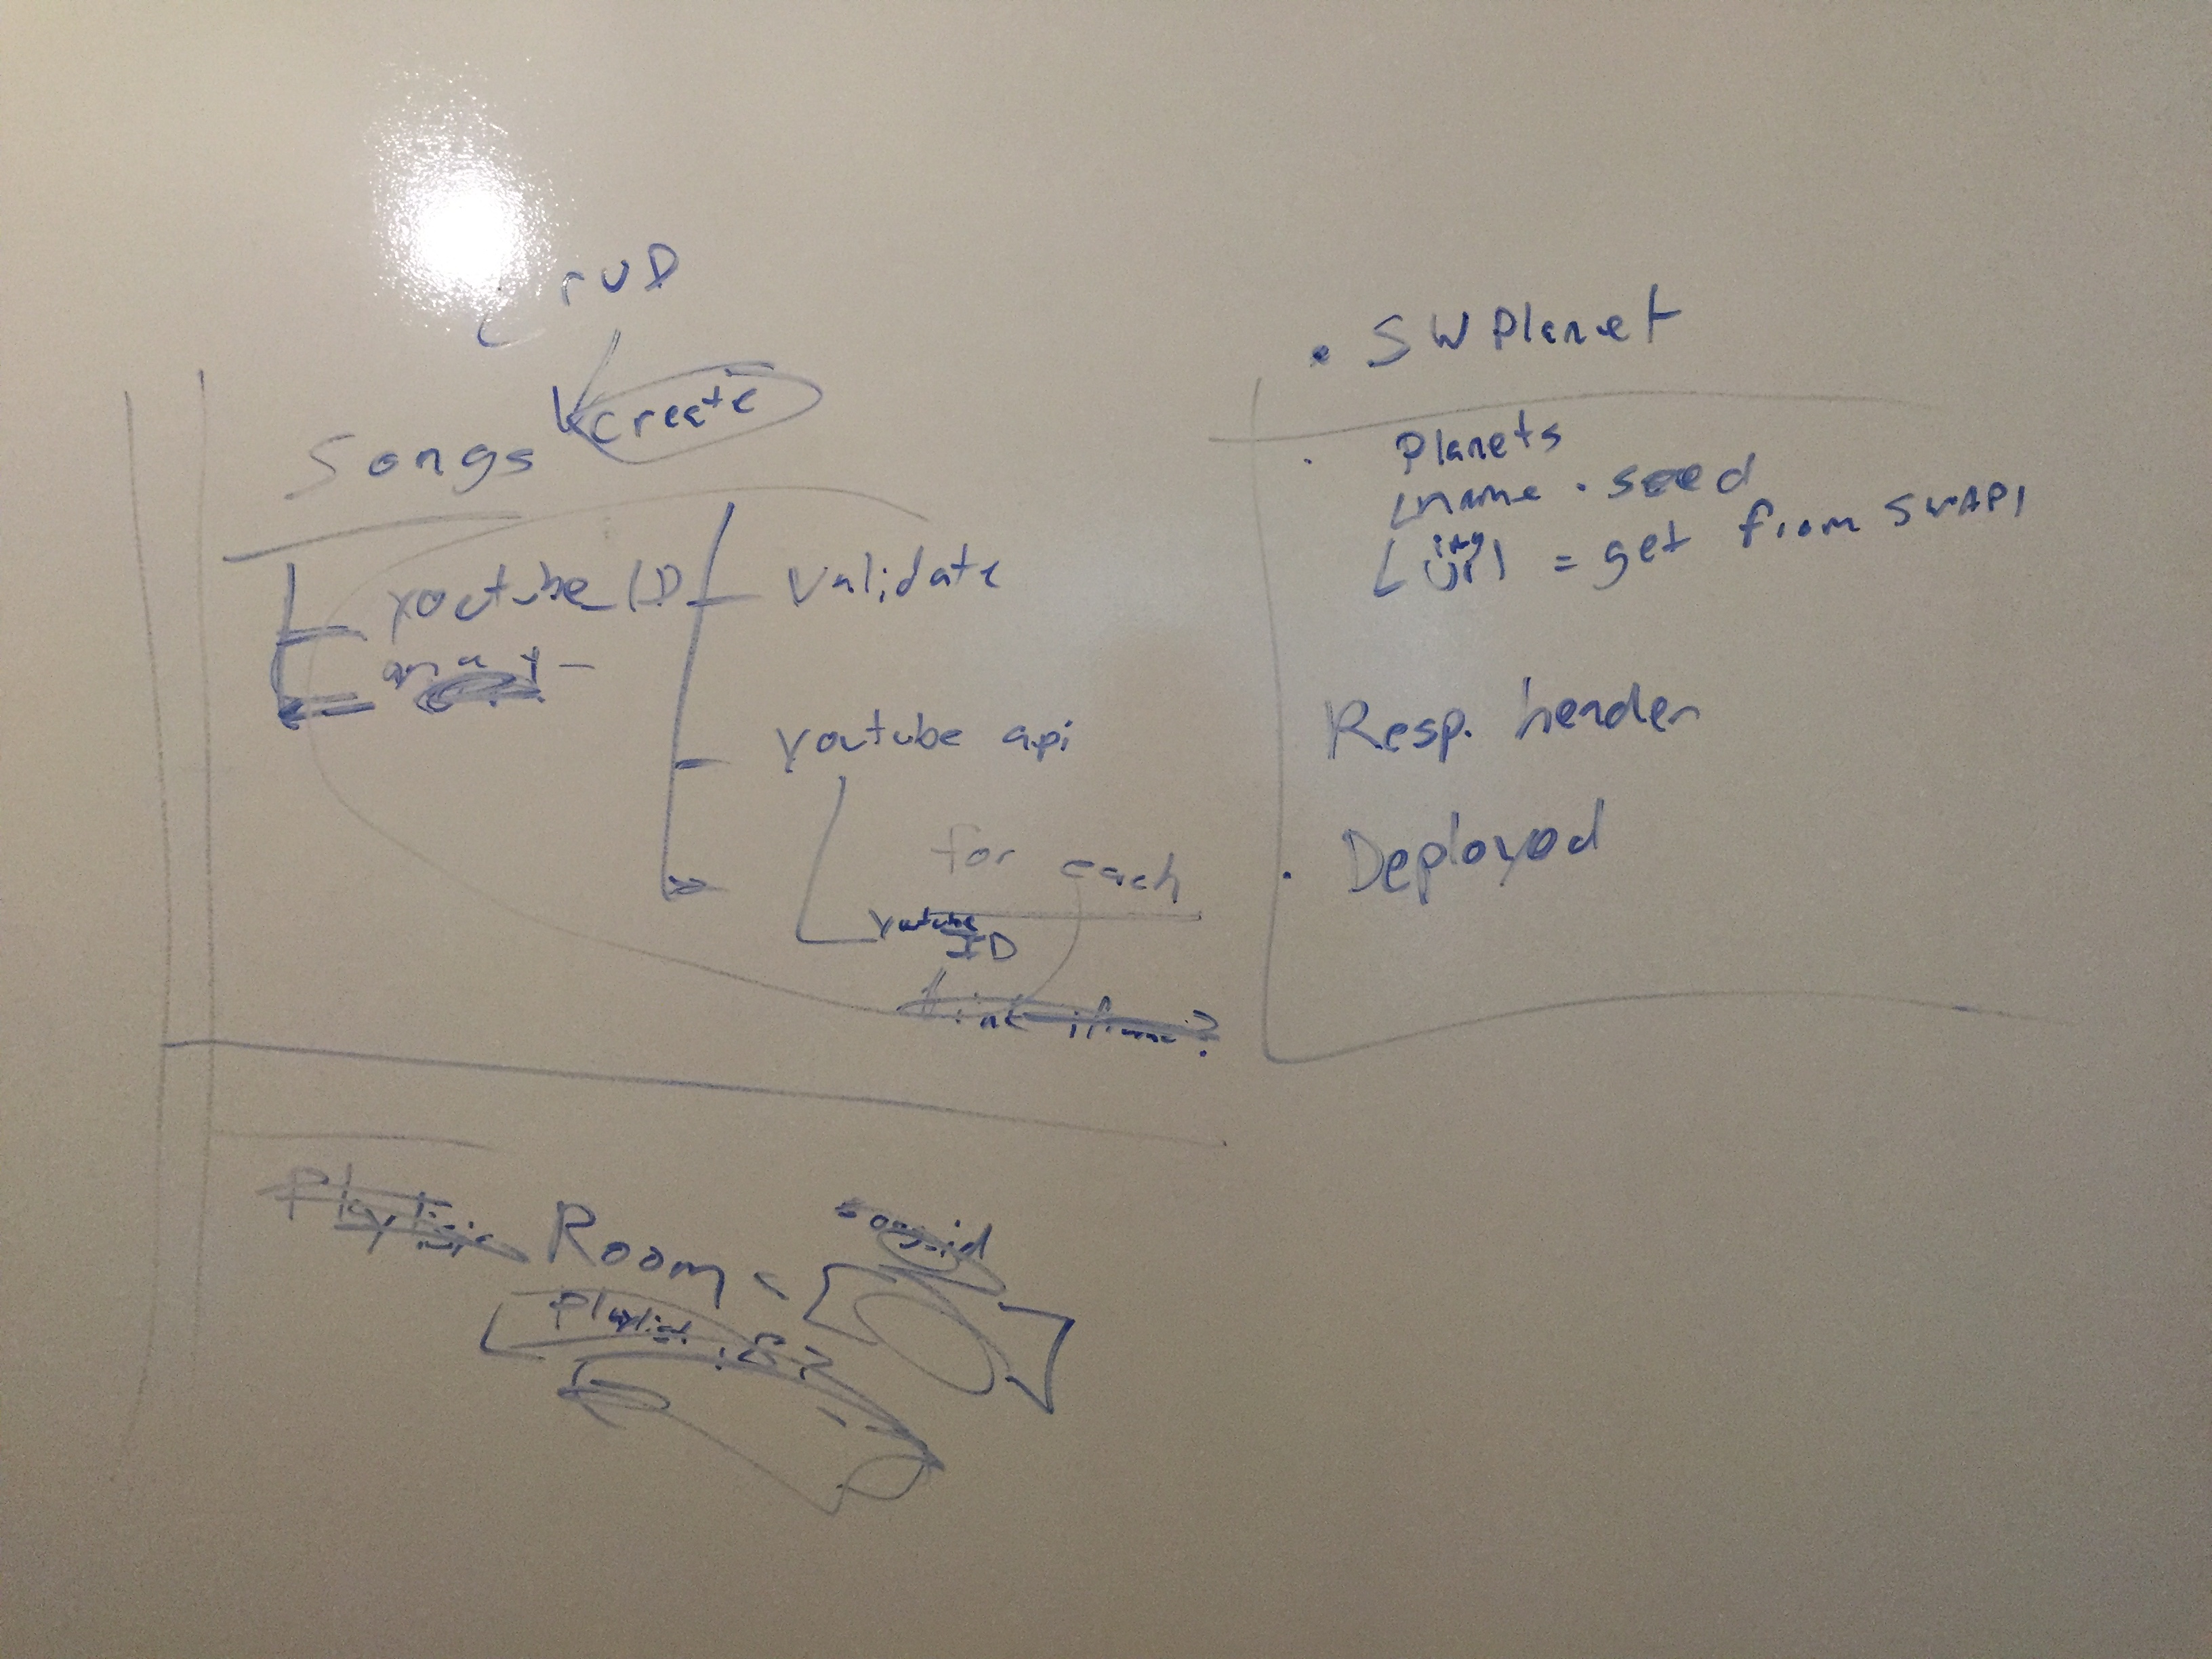 CrUD
create
Songs
youtube_ID
array
validate
youtube api
for each
youtube
ID
Playlist Room
songid
playlist
• SW Planet
Planets
name • seed
img
url = get from SWAPI
Resp. header
• Deployed